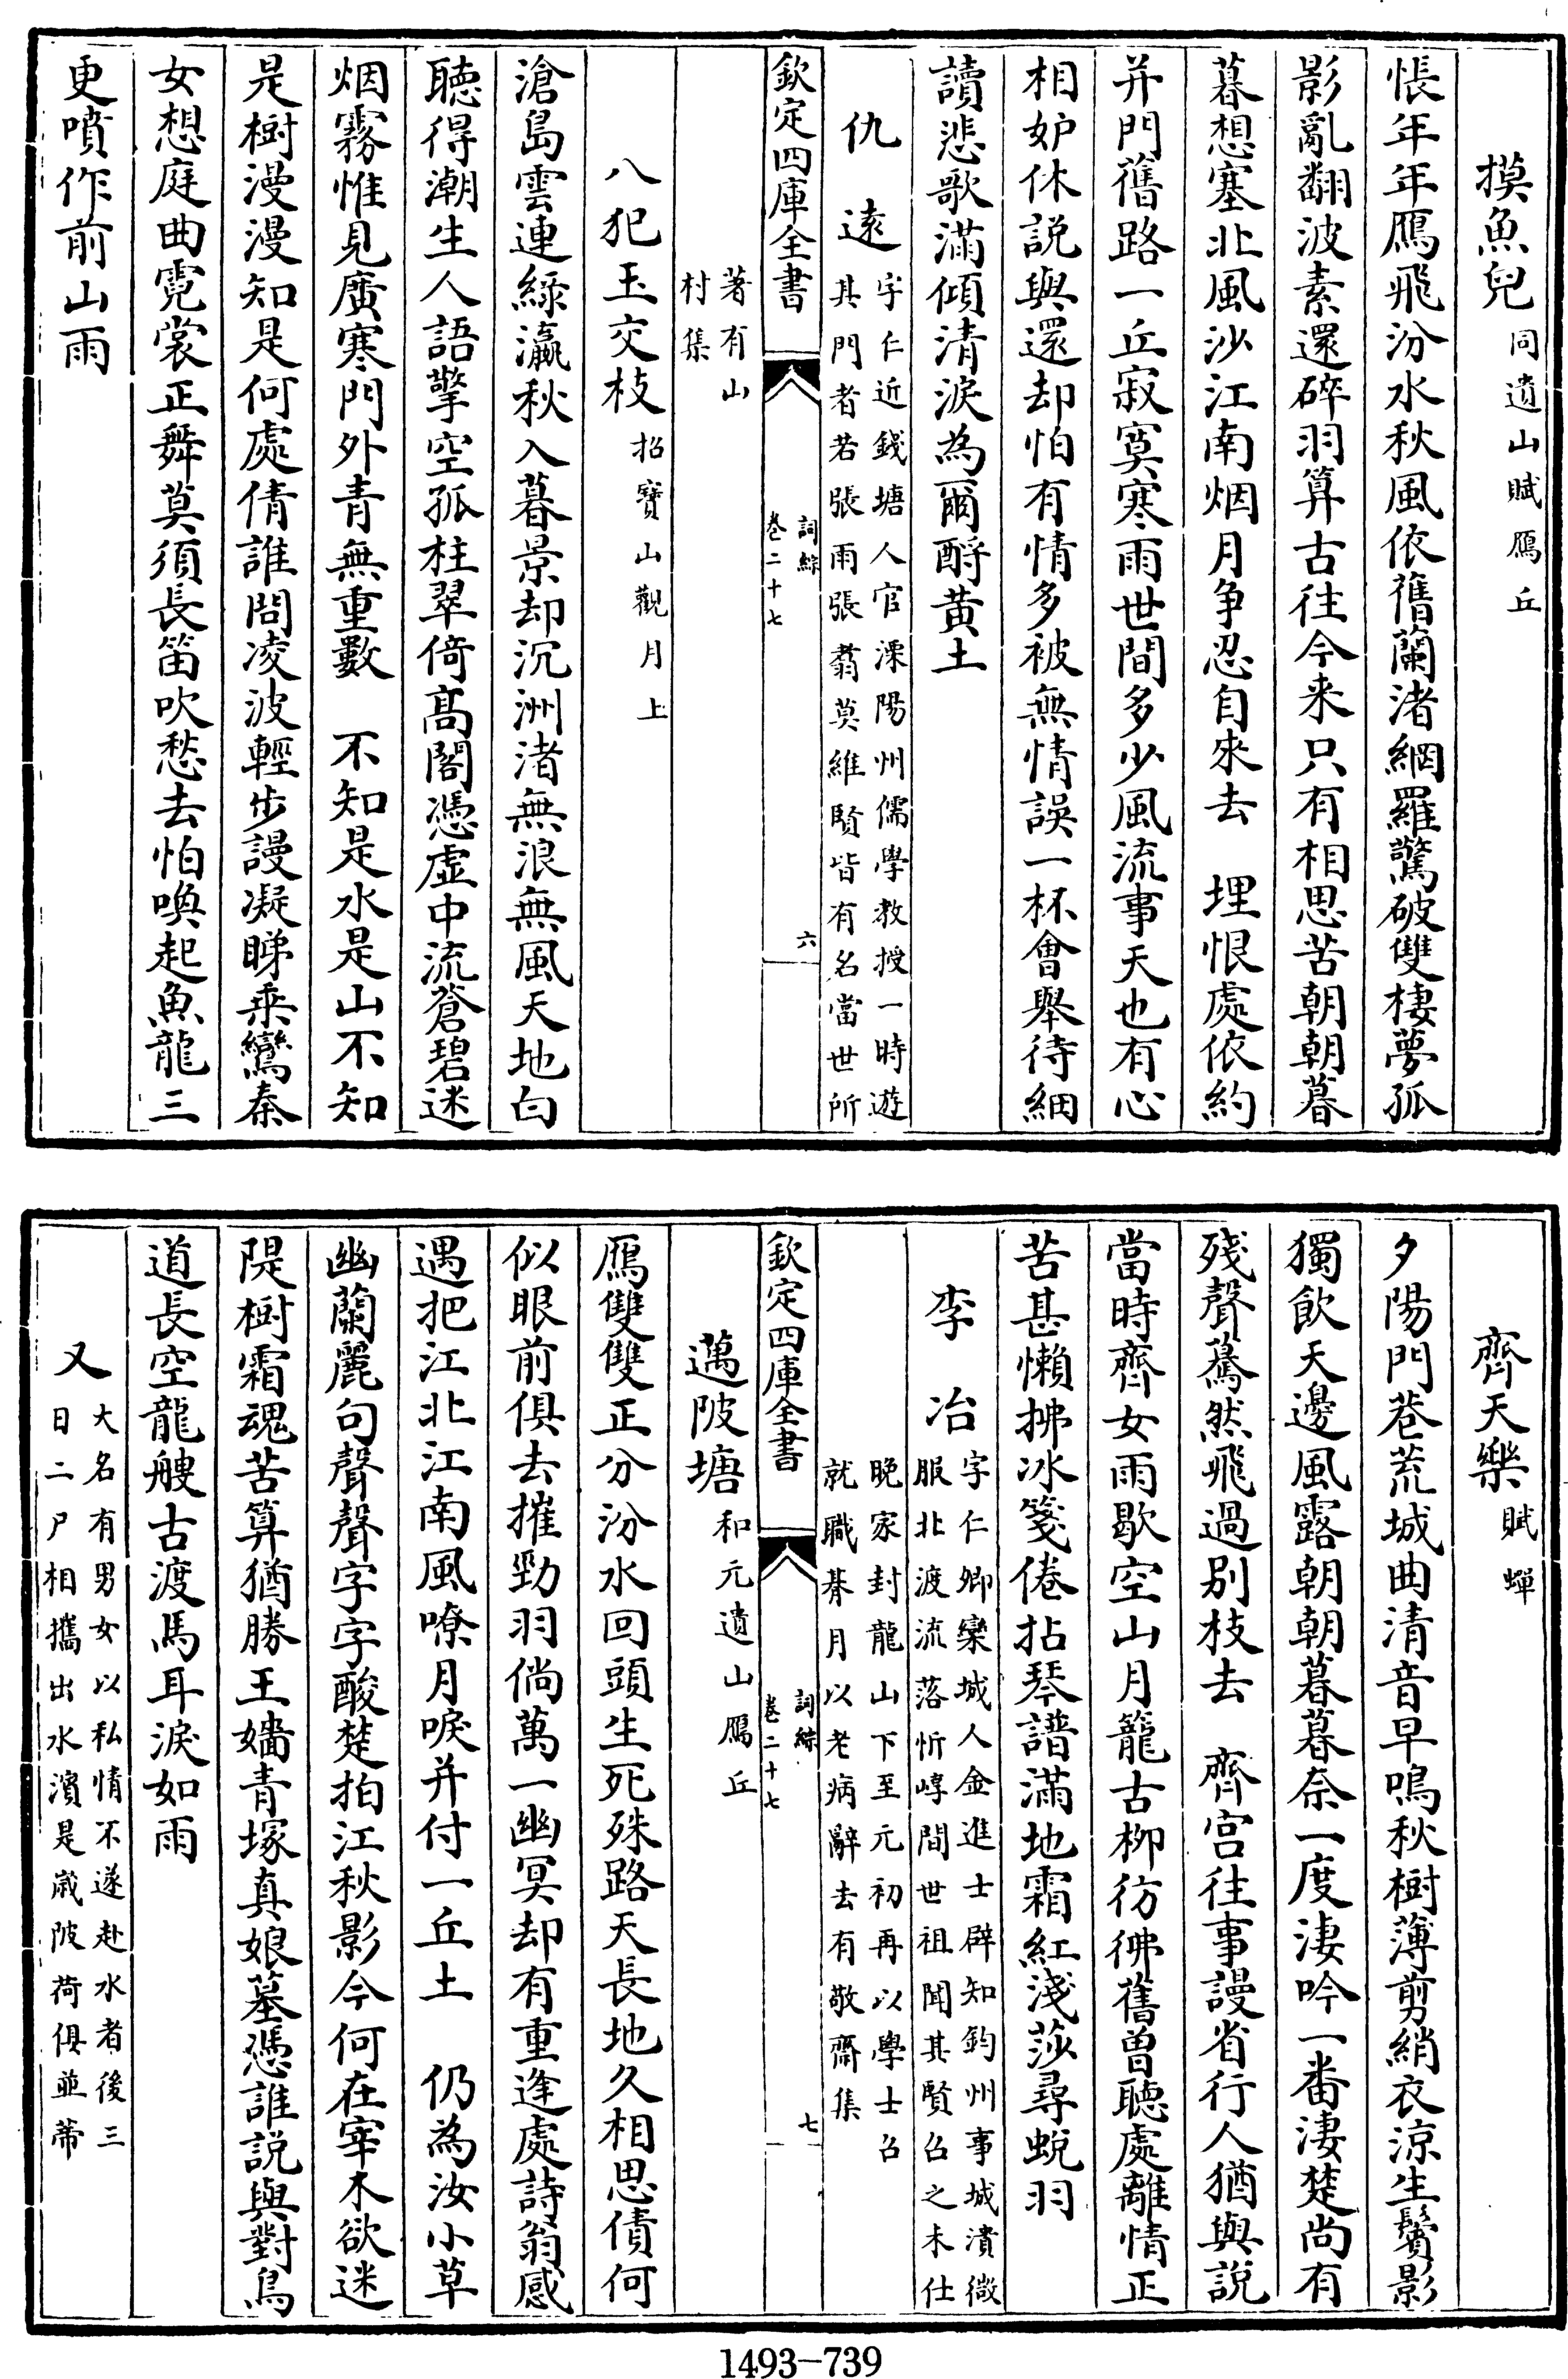 摸魚兒同遺山賦鴈丘
悵年年鴈飛汾水秋風依舊蘭渚網羅驚破雙棲夢孤
影亂翻波素還碎羽算古往今来只有相思苦朝朝暮
暮想塞北風沙江南烟月争忍自來去　埋恨處依約
并門舊路一丘寂寞寒雨世間多少風流事天也有心
相妒休説與還却怕有情多被無情誤一杯㑹舉待細
讀悲歌滿傾清淚為爾酹黄土
仇遠字仁近錢塘人官溧陽州儒學教授一時遊
其門者若張雨張翥莫維賢皆有名當世所
欽定四庫全書
詞綜
卷二十七
六
著有山
村集
八犯玉交枝招寶山觀月上
滄島雲連綠瀛秋入暮景却沉洲渚無浪無風天地白
聽得潮生人語擎空孤柱翠倚髙閣憑虚中流蒼碧迷
烟霧惟見廣寒門外青無重數　不知是水是山不知
是樹漫漫知是何處倩誰問凌波輕步謾凝睇乘鸞秦
女想庭曲霓裳正舞莫須長笛吹愁去怕喚起魚龍三
更噴作前山雨
齊天樂賦蟬
夕陽門巷荒城曲清音早鳴秋樹薄剪綃衣涼生鬢影
獨飲天邊風露朝朝暮暮奈一度淒吟一番淒楚尚有
殘聲驀然飛過别枝去　齊宫往事謾省行人猶與説
當時齊女雨歇空山月籠古柳彷彿舊曽聽處離情正
苦甚懶拂冰箋倦拈琴譜滿地霜紅淺莎尋蛻羽
李冶字仁卿欒城人金進士辟知鈞州事城潰微
服北渡流落忻崞間世祖聞其賢召之未仕
晚家封龍山下至元初再以學士召
就職朞月以老病辭去有敬齋集
欽定四庫全書
詞綜
卷二十七
七
邁陂塘和元遺山鴈丘
鴈雙雙正分汾水回頭生死殊路天長地久相思債何
似眼前俱去摧勁羽倘萬一幽冥却有重逢處詩翁感
遇把江北江南風嘹月唳并付一丘土　仍為汝小草
幽蘭麗句聲聲字字酸楚拍江秋影今何在宰木欲迷
隄樹霜魂苦算猶勝王嬙青塚真娘墓憑誰説與對鳥
道長空龍艘古渡馬耳淚如雨
又大名有男女以私情不遂赴水者後三
日二尸相攜出水濱是嵗陂荷俱並蒂
1493—739